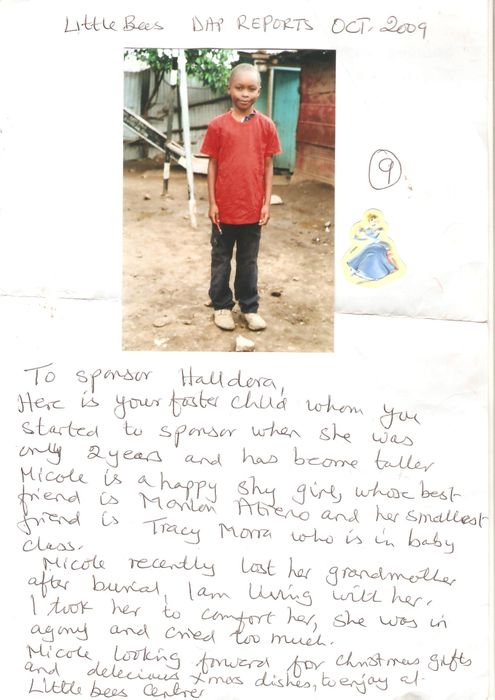 Little Bees DAP REPORTS OCT. 2009
9
To sponsor Halldora,
Here is your foster child whom you
started to sponsor when she was
only 2 years and has become taller
Micole is a happy shy girl, whose best
friend is Marion Atieno and her smallest
friend is Tracy Morra who is in baby
class.
Micole recently lost her grandmother
after burial, I am living with her.
I took her to comfort her, she was in
agony and cried too much.
Micole looking forward for christmas gifts
and delecious Xmas dishes, to enjoy at
Little bees Center